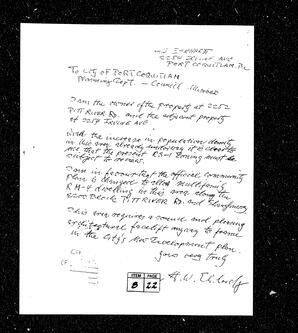 2254 IRVINE AVE
PORT COQUITLAM, BC
To City of PORT COQUITLAM
Planning Dept. — Council Member
I am the owner of the property at 2252
PITT RIVER Rd. and the adjacent property
at IRVINE AVE.
With the increase in population density
in this area already underway it is
that the present RS-1 Zoning must be
subject to
I am in favour that the official community
plan is changed to allow multifamily
RM-4 dwelling in this area along the
2200 Block PITT RIVER Rd. and
This area requires a council and planning
architectural facelift anyway to
in the City's Development plan.
yours very truly
ITEM PAGE
B 22